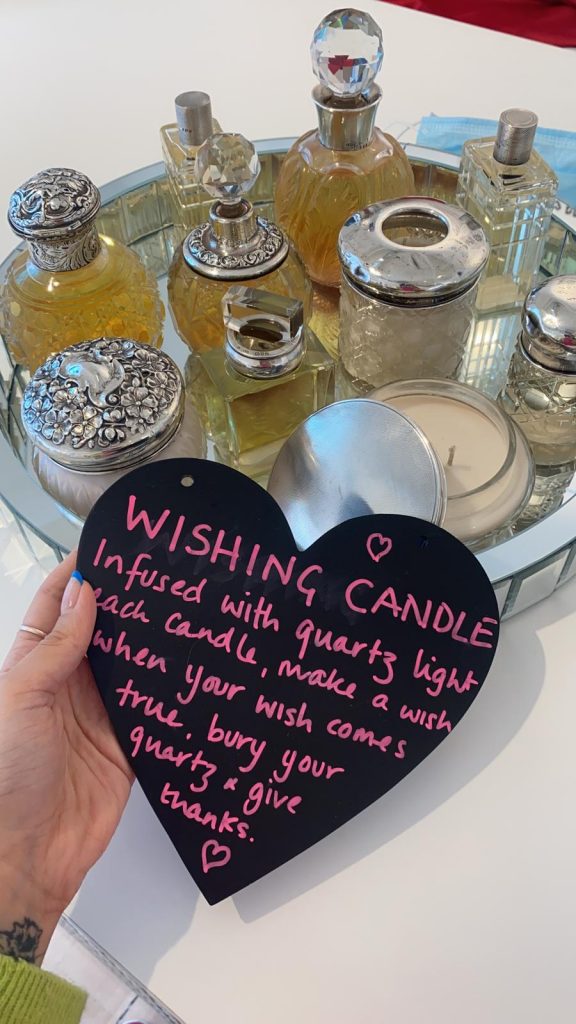 WISHING CANDLE
Infused with quartz light
each candle, make a wish
when your wish comes
true, bury your
quartz & give
thanks.